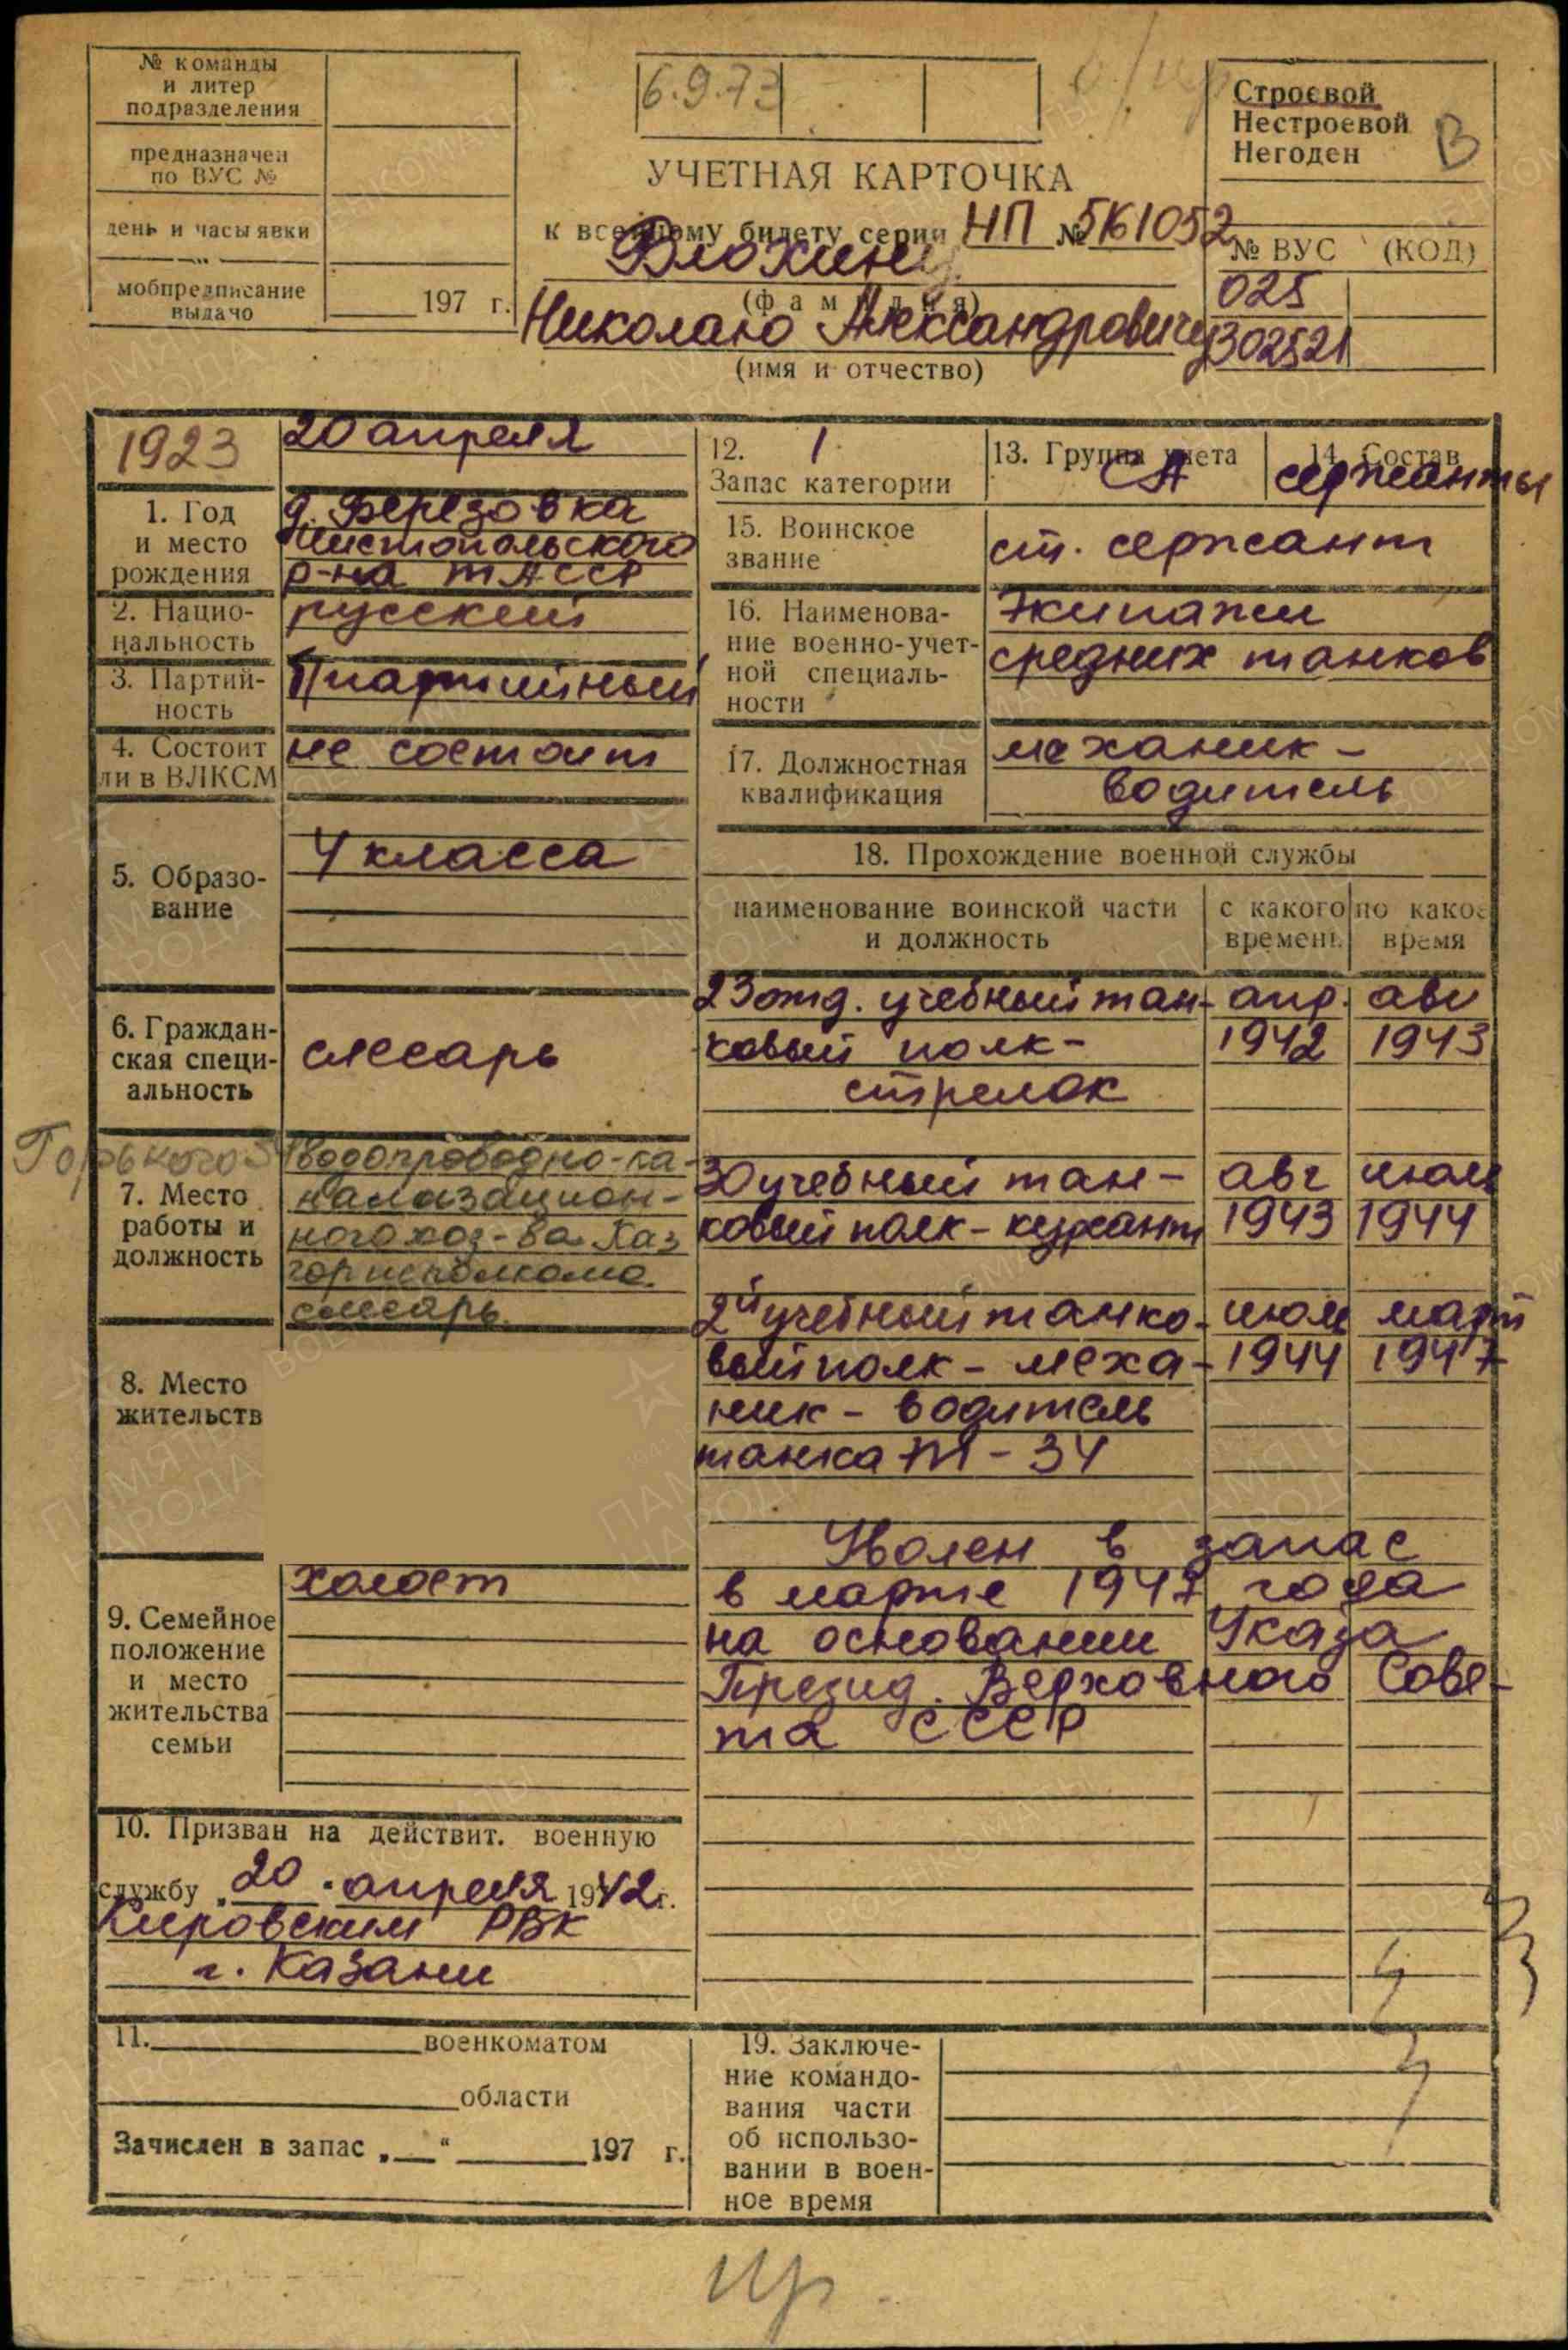 № команды
и литер
подразделения
предназначен
по ВУС №
день и часы явки
мобпредписание
выдано
197 г.
6.9.73
УЧЕТНАЯ КАРТОЧКА
к военному билету серии НП № 5161052
Блохину
(фамилия)
Николаю Александровичу
(имя и отчество)
Строевой
Нестроевой
Негоден
В
№ ВУС (КОД)
025
302521
1923
20 апреля
1. Год
и место
рождения
д. Березовка
Чистопольского
р-на ТАССР
2. Нацио-
нальность
русский
3. Партий-
ность
4. Состоит
ли в ВЛКСМ
не состоит
5. Образо-
вание
4 класса
6. Граждан-
ская специ-
альность
слесарь
Горького
7. Место
работы и
должность
Водопроводно-ка-
нализацион-
ного хоз-ва Каз
горисполкома
слесарь
8. Место
жительств
9. Семейное
положение
и место
жительства
семьи
холост
10. Призван на действит. военную
службу „20" апреля 1942 г.
Кировским РВК
г. Казани
11. военкоматом
области
Зачислен в запас „ “ 197 г.
12. 1
Запас категории
13. Группа учета
СА
14. Состав
сержанты
15. Воинское
звание
ст. сержант
16. Наименова-
ние военно-учет-
ной специаль-
ности
Экипажи
средних танков
17. Должностная
квалификация
механик-
водитель
18. Прохождение военной службы
наименование воинской части
и должность
с какого
времени
по какое
время
23 отд. учебный тан- апр. авг
ковый полк- 1942 1943
стрелок
30 учебный тан- авг июль
ковый полк - курсант 1943 1944
2й учебный танко- июль март
вый полк - меха- 1944 1947
ник - водитель
танка Т-34
Уволен в запас
в марте 1947 года
на основании Указа
Презид. Верховного Сове-
та СССР
19. Заключе-
ние командо-
вания части
об использо-
вании в воен-
ное время
ПАМЯТЬ
НАРОДА
ВОЕНКОМАТЫ